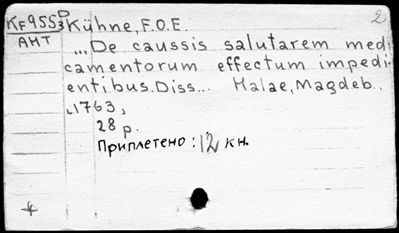 KF955D3 Kühne, F.O.E. 2
АНТ
„,De caussis salutarem medi
camentorum effectum impedi-
entibus. Diss... Halae, Magdeb..
„1763,
28 p.
Приплетено: 12 кн.